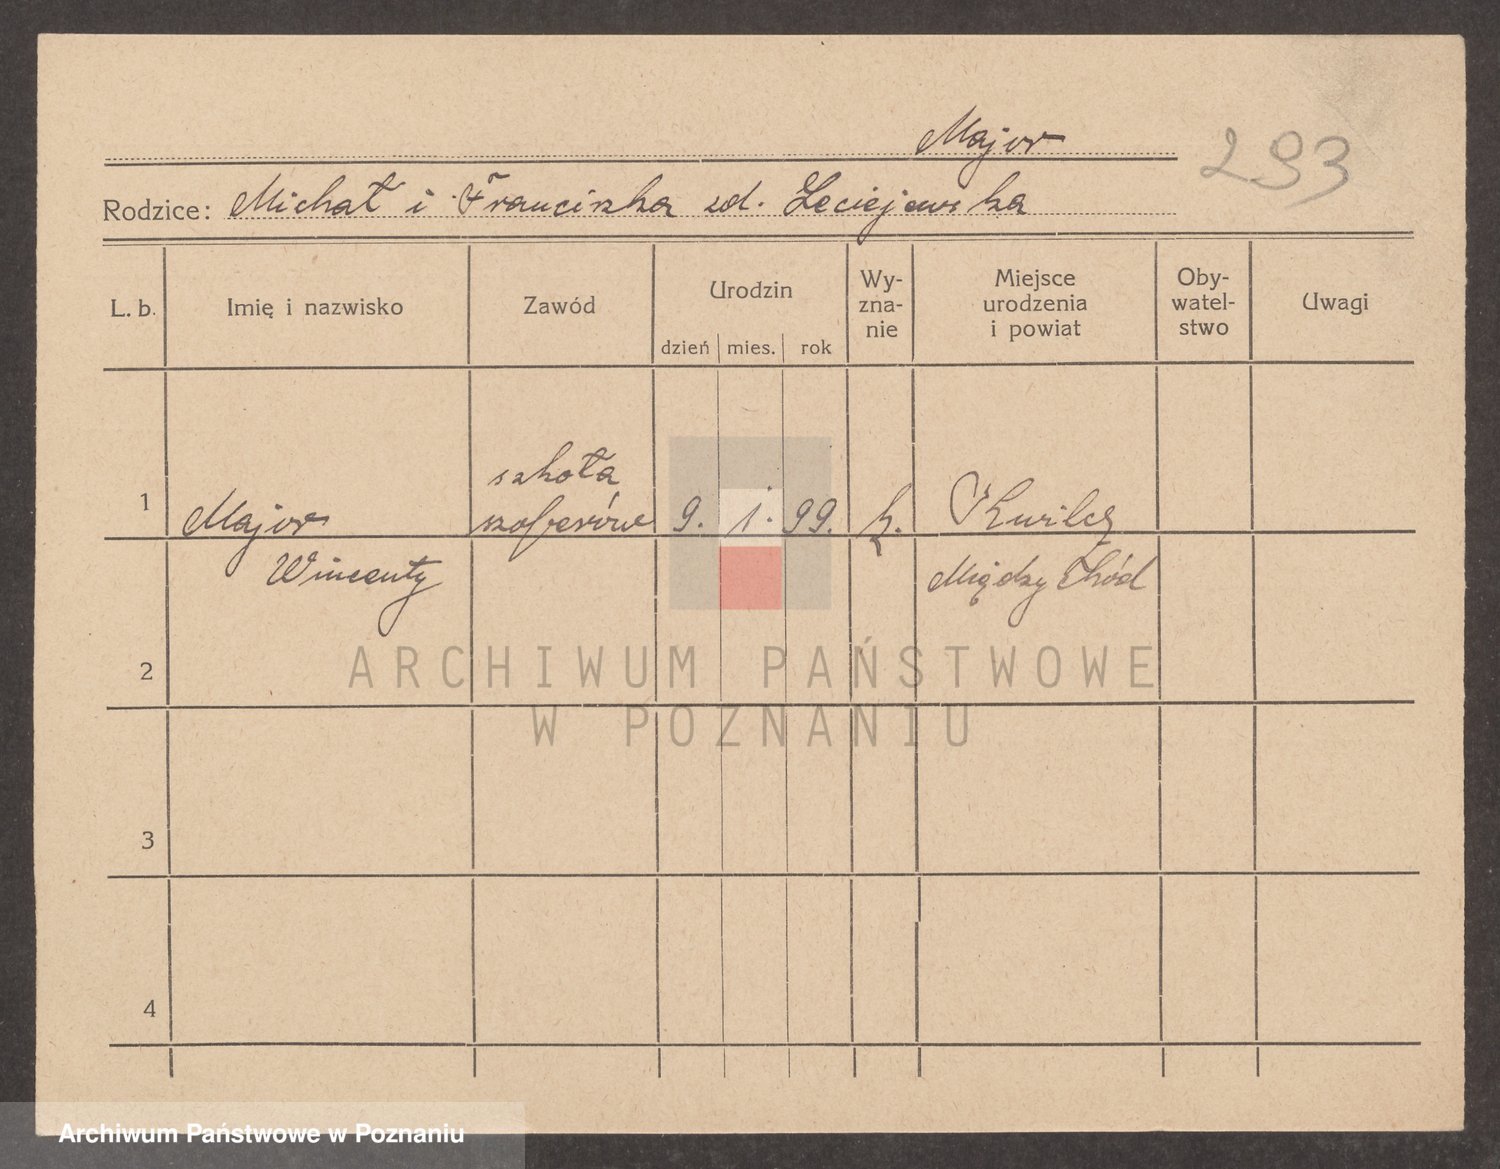 Major
293
Rodzice: Michał i Franciszka zd. Leciejewska
L. b.
Imię i nazwisko
Zawód
Urodzin
dzień mies. rok
Wy-
zna-
nie
Miejsce
urodzenia
i powiat
Oby-
watel-
stwo
Uwagi
1
Major
Wincenty
szkoła
szoferów
9. 1. 99.
k.
Kwilcz
Międzychód
2
3
4
ARCHIWUM PAŃSTWOWE
W POZNANIU
Archiwum Państwowe w Poznaniu